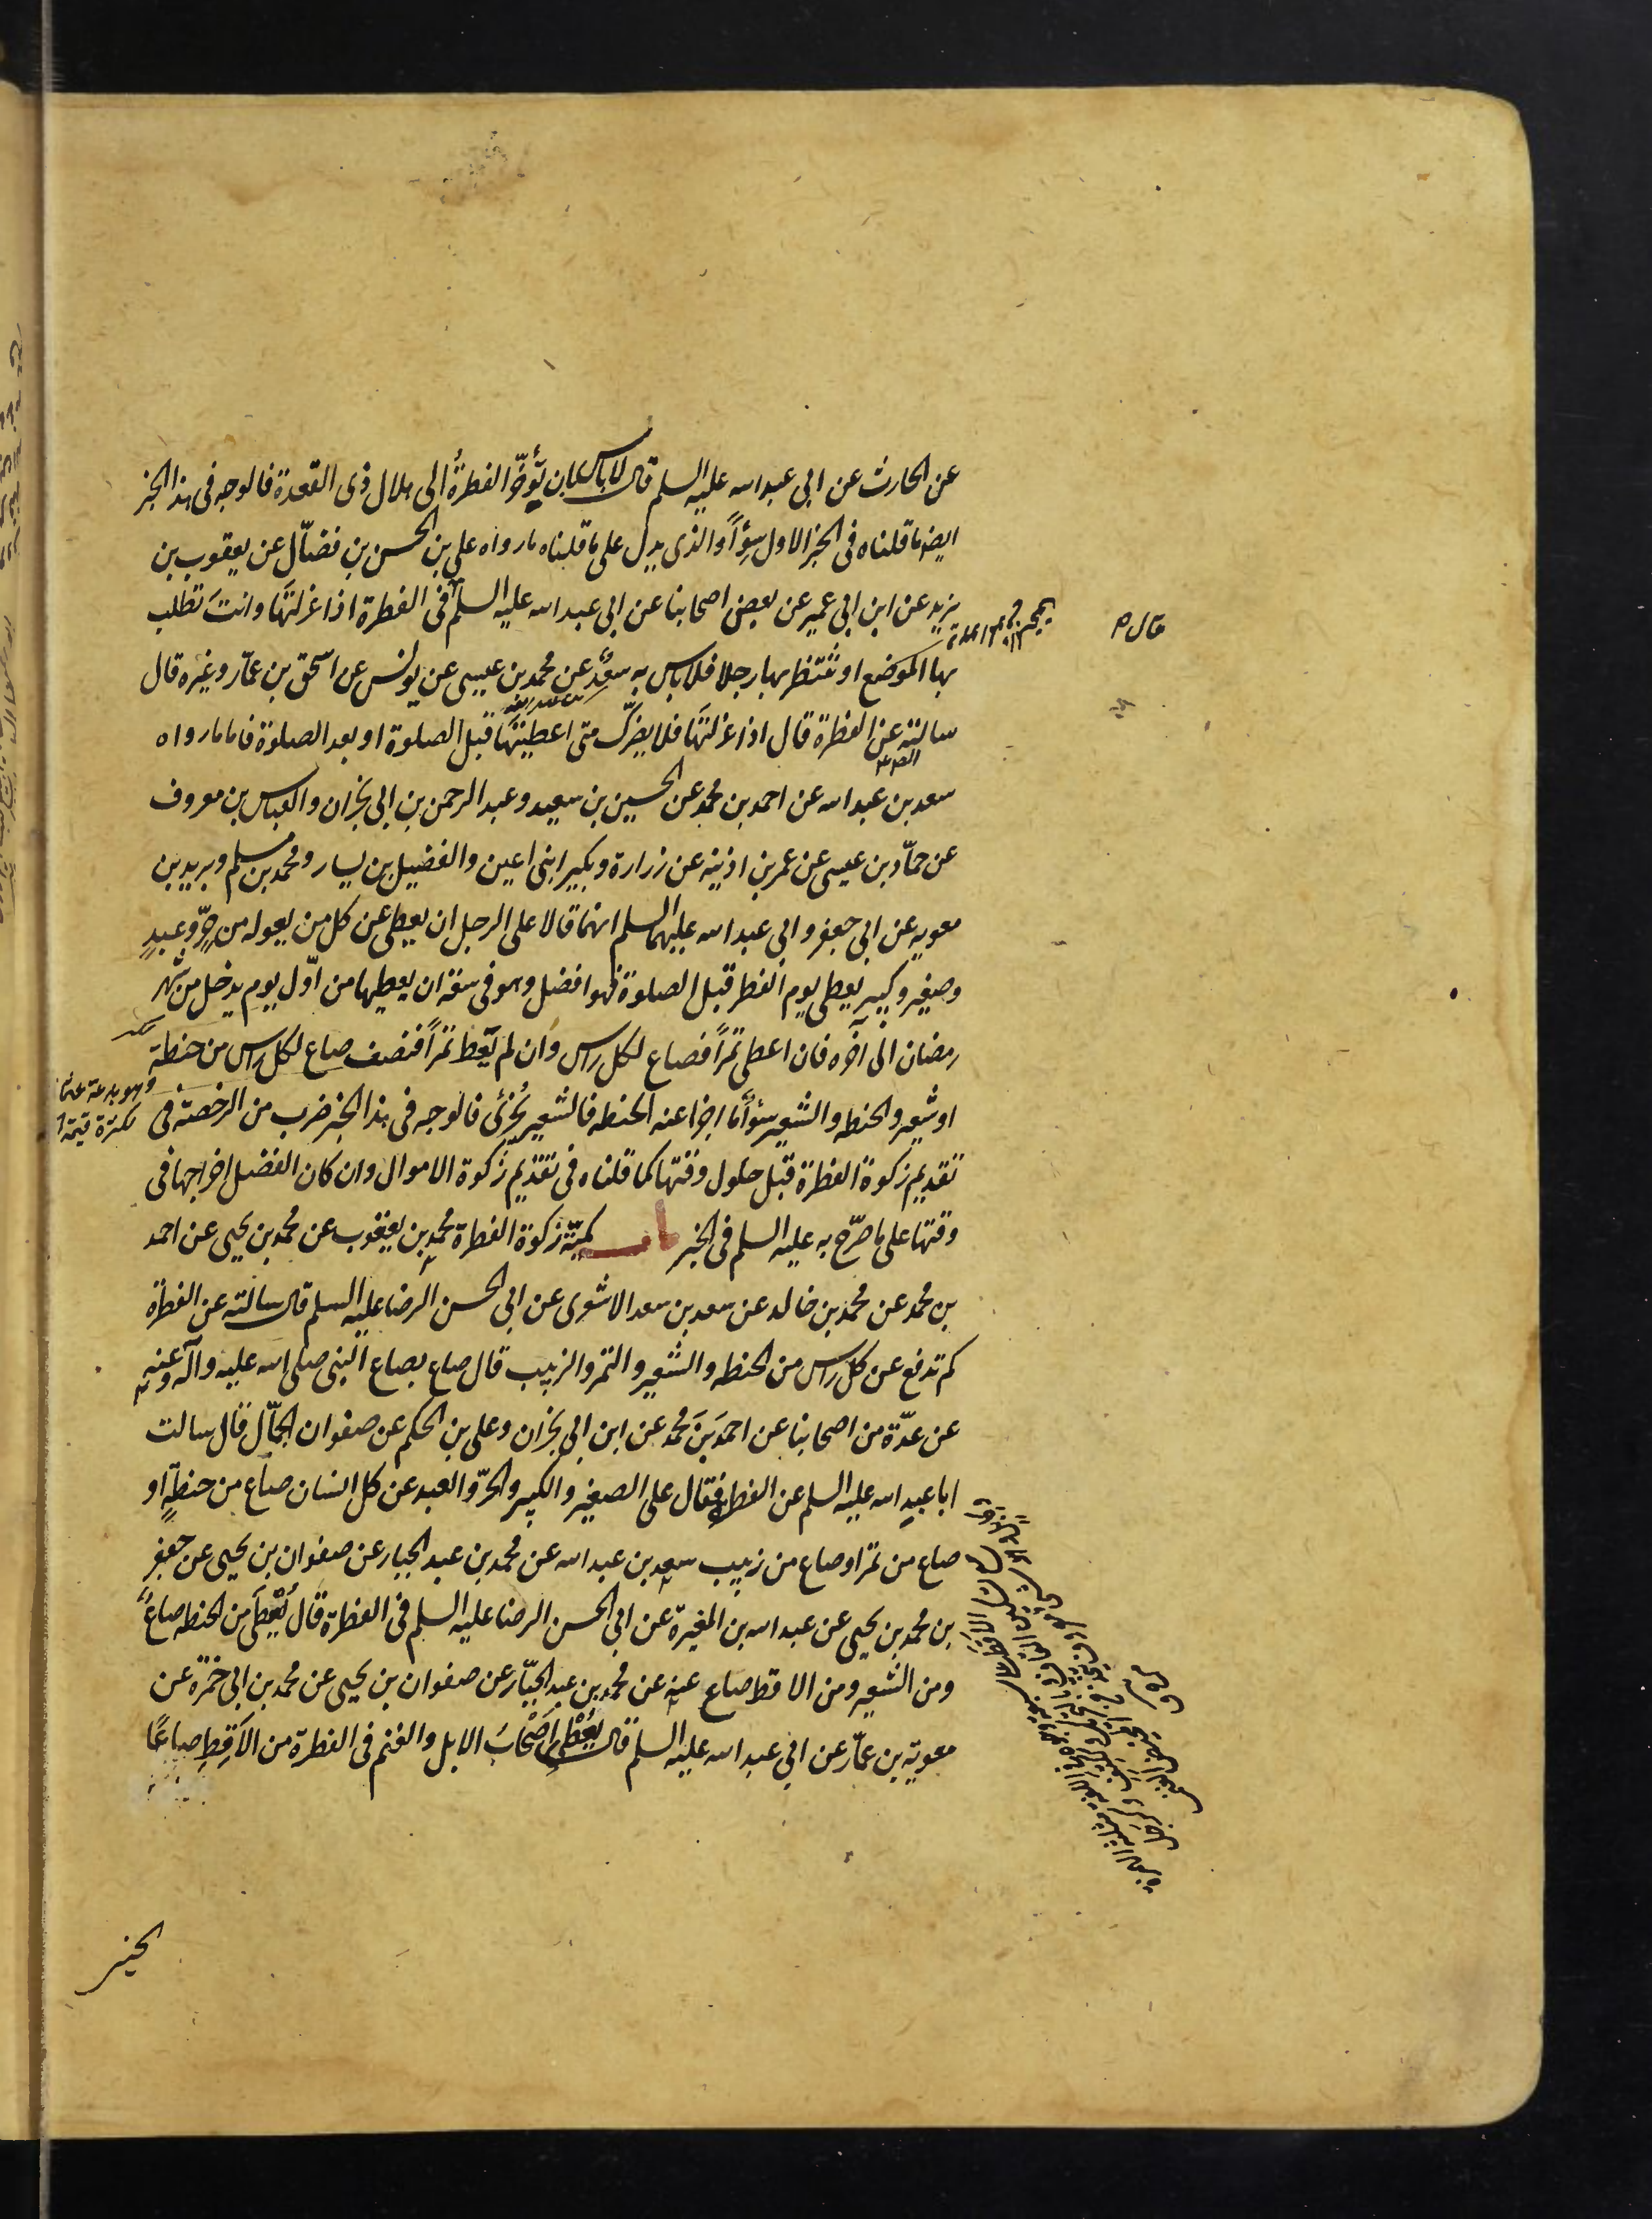 عن الحارث عن ابى عبد الله عليه السلم قال لا باس بان تؤخّر الفطرةُ الى هلال ذى القعدة فالوجه فى هذا الخبر
ايضا ما قلناه فى الخبر الاول سواءً والذى يدل على ما قلناه ما رواه على بن الحسن بن فضّال عن يعقوب بن
يزيد عن ابن ابى عمير عن بعض اصحابنا عن ابى عبد الله عليه السلم فى الفطرة اذا عزلتَها وانتَ تطلب
بها الموضع او تنتظر بها رجلا فلا باس به سعد عن محمد بن عيسى عن يونس عن اسحق بن عمّار وغيره قال
سالته عن الفطرة قال اذا عزلتَها فلا يضرّك متى اعطيتَها قبل الصلوة او بعد الصلوة فاما ما رواه
سعد بن عبد الله عن احمد بن محمد عن الحسين بن سعيد وعبد الرحمن بن ابى نجران والعباس بن معروف
عن حمّاد بن عيسى عن عمر بن اذينه عن زرارة وبكير ابنى اعين والفضيل بن يسار ومحمد بن مسلم وبريد بن
معويه عن ابى جعفر وابى عبد الله عليهما السلم انهما قالا على الرجل ان يعطى عن كل من يعوله من حرّ وعبدٍ
وصغير وكبير يعطى يوم الفطر قبل الصلوة فهو افضل وهو فى سعة ان يعطيها من اوّل يوم يدخل من شهر
رمضان الى آخره فان اعطى تمراً فصاع لكل راس وان لم يُعطِ تمراً فنصف صاع لكل راس من حنطة
او شعير والحنطه والشعير سواءٌ ما اجزا عنه الحنطه فالشعير يُجزئ فالوجه فى هذا الخبر ضرب من الرخصة فى
تقديم زكوة الفطرة قبل حلول وقتها كما قلناه فى تقديم زكوة الاموال وان كان الفضل اخراجها فى
وقتها على ما صرّح به عليه السلم فى الخبر باب كميّة زكوة الفطرة محمد بن يعقوب عن محمد بن يحيى عن احمد
بن محمد عن محمد بن خالد عن سعد بن سعد الاشعرى عن ابى الحسن الرضا عليه السلم قال سالته عن الفطرة
كم تدفع عن كل راس من الحنطه والشعير والتمر والزبيب قال صاع بصاع النبى صلى الله عليه وآله وعنه
عن عدّة من اصحابنا عن احمدَ بن محمد عن ابن ابى نجران وعلى بن الحكم عن صفوان الجمّال قال سالت
ابا عبد الله عليه السلم عن الفطرة فقال على الصغير والكبير والحرّ والعبد عن كل انسان صاع من حنطةٍ او
صاع من تمر او صاع من زبيب سعد بن عبد الله عن محمد بن عبد الجبار عن صفوان بن يحيى عن جعفر
بن محمد بن يحيى عن عبد الله بن المغيرة عن ابى الحسن الرضا عليه السلم فى الفطرة قال تُعْطى من الحنطه صاعٌ
ومن الشعير ومن الاقط صاع عنه عن محمد بن عبد الجبّار عن صفوان بن يحيى عن محمد بن ابى حمزة عن
معوية بن عمّار عن ابى عبد الله عليه السلم قال يُعْطى اَصْحابُ الابل والغنم فى الفطرة من الاَقِطِ صاعًا
قال